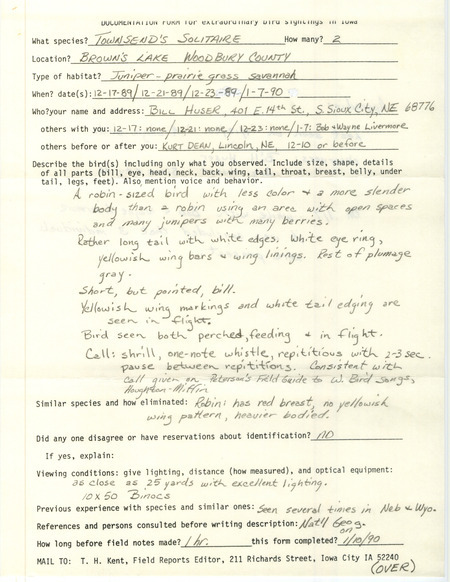 DOCUMENTATION FORM for extraordinary bird sightings in Iowa
What species? TOWNSEND'S SOLITAIRE How many? 2
Location? BROWN'S LAKE WOODBURY COUNTY
Type of habitat? Juniper-prairie grass savannah
When? date(s): 12-17-89/12-21-89/12-23-89/1-7-90
Who? your name and address: BILL HUSER, 401 E. 14th St., S. Sioux City, NE 68776
others with you: 12-17: none/12-21: none/12-23: none/1-7: Bob & Wayne Livermore
others before or after you: KURT DEAN, Lincoln, NE, 12-10 or before
Describe the bird(s) including only what you observed. Include size, shape, details
of all parts (bill, eye, head, neck, back, wing, tail, throat, breast, belly, under
tail, legs, feet). Also mention voice and behavior.
A robin-sized bird with less color & a more slender
body than a robin using an area with open spaces
and many junipers with many berries.
Rather long tail with white edges. White eye ring,
yellowish wing bars & wing linings. Rest of plumage
gray.
Short, but pointed, bill.
Yellowish wing markings and white tail edging are
seen in flight.
Bird seen both perched, feeding & in flight.
Call: shrill, one-note whistle, repititious with 2-3 sec.
pause between repititions. Consistent with
call given on Peterson's Field Guide to W. Bird Songs,
Houghton-Mifflin
Similar species and how eliminated: Robin: has red breast, no yellowish
wing pattern, heavier bodied.
Did any one disagree or have reservations about identification? NO
If yes, explain:
Viewing conditions: give lighting, distance (how measured), and optical equipment:
as close as 25 yards with excellent lighting.
10x50 Binocs
Previous experience with species and similar ones: Seen several times in Neb & Wyo.
References and persons consulted before writing description: Nat'l Geog.
How long before field notes made? 1 hr. this form completed? on 1/10/90
MAIL TO: T. H. Kent, Field Reports Editor, 211 Richards Street, Iowa City IA 52240
(OVER)